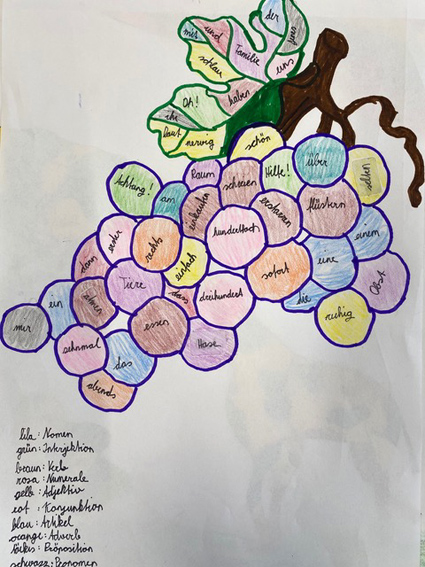 der
mit und uns
Familie
schlau eins
Oh! haben
ihr
laut nervig
schön
Raum Hilfe! über
Achtung! schauen selten
an einkaufen erstarren flüstern
erster rechts hundertfach einem
dann einfach sofort eine Obst
Tiere
ein sehen dass dreihundert die
mir essen ruhig
zehnmal das Hase
abends
lila: Nomen
grün: Interjektion
braun: Verb
rosa: Numerale
gelb: Adjektiv
rot: Konjunktion
blau: Artikel
orange: Adverb
türkis: Präposition
schwarz: Pronomen